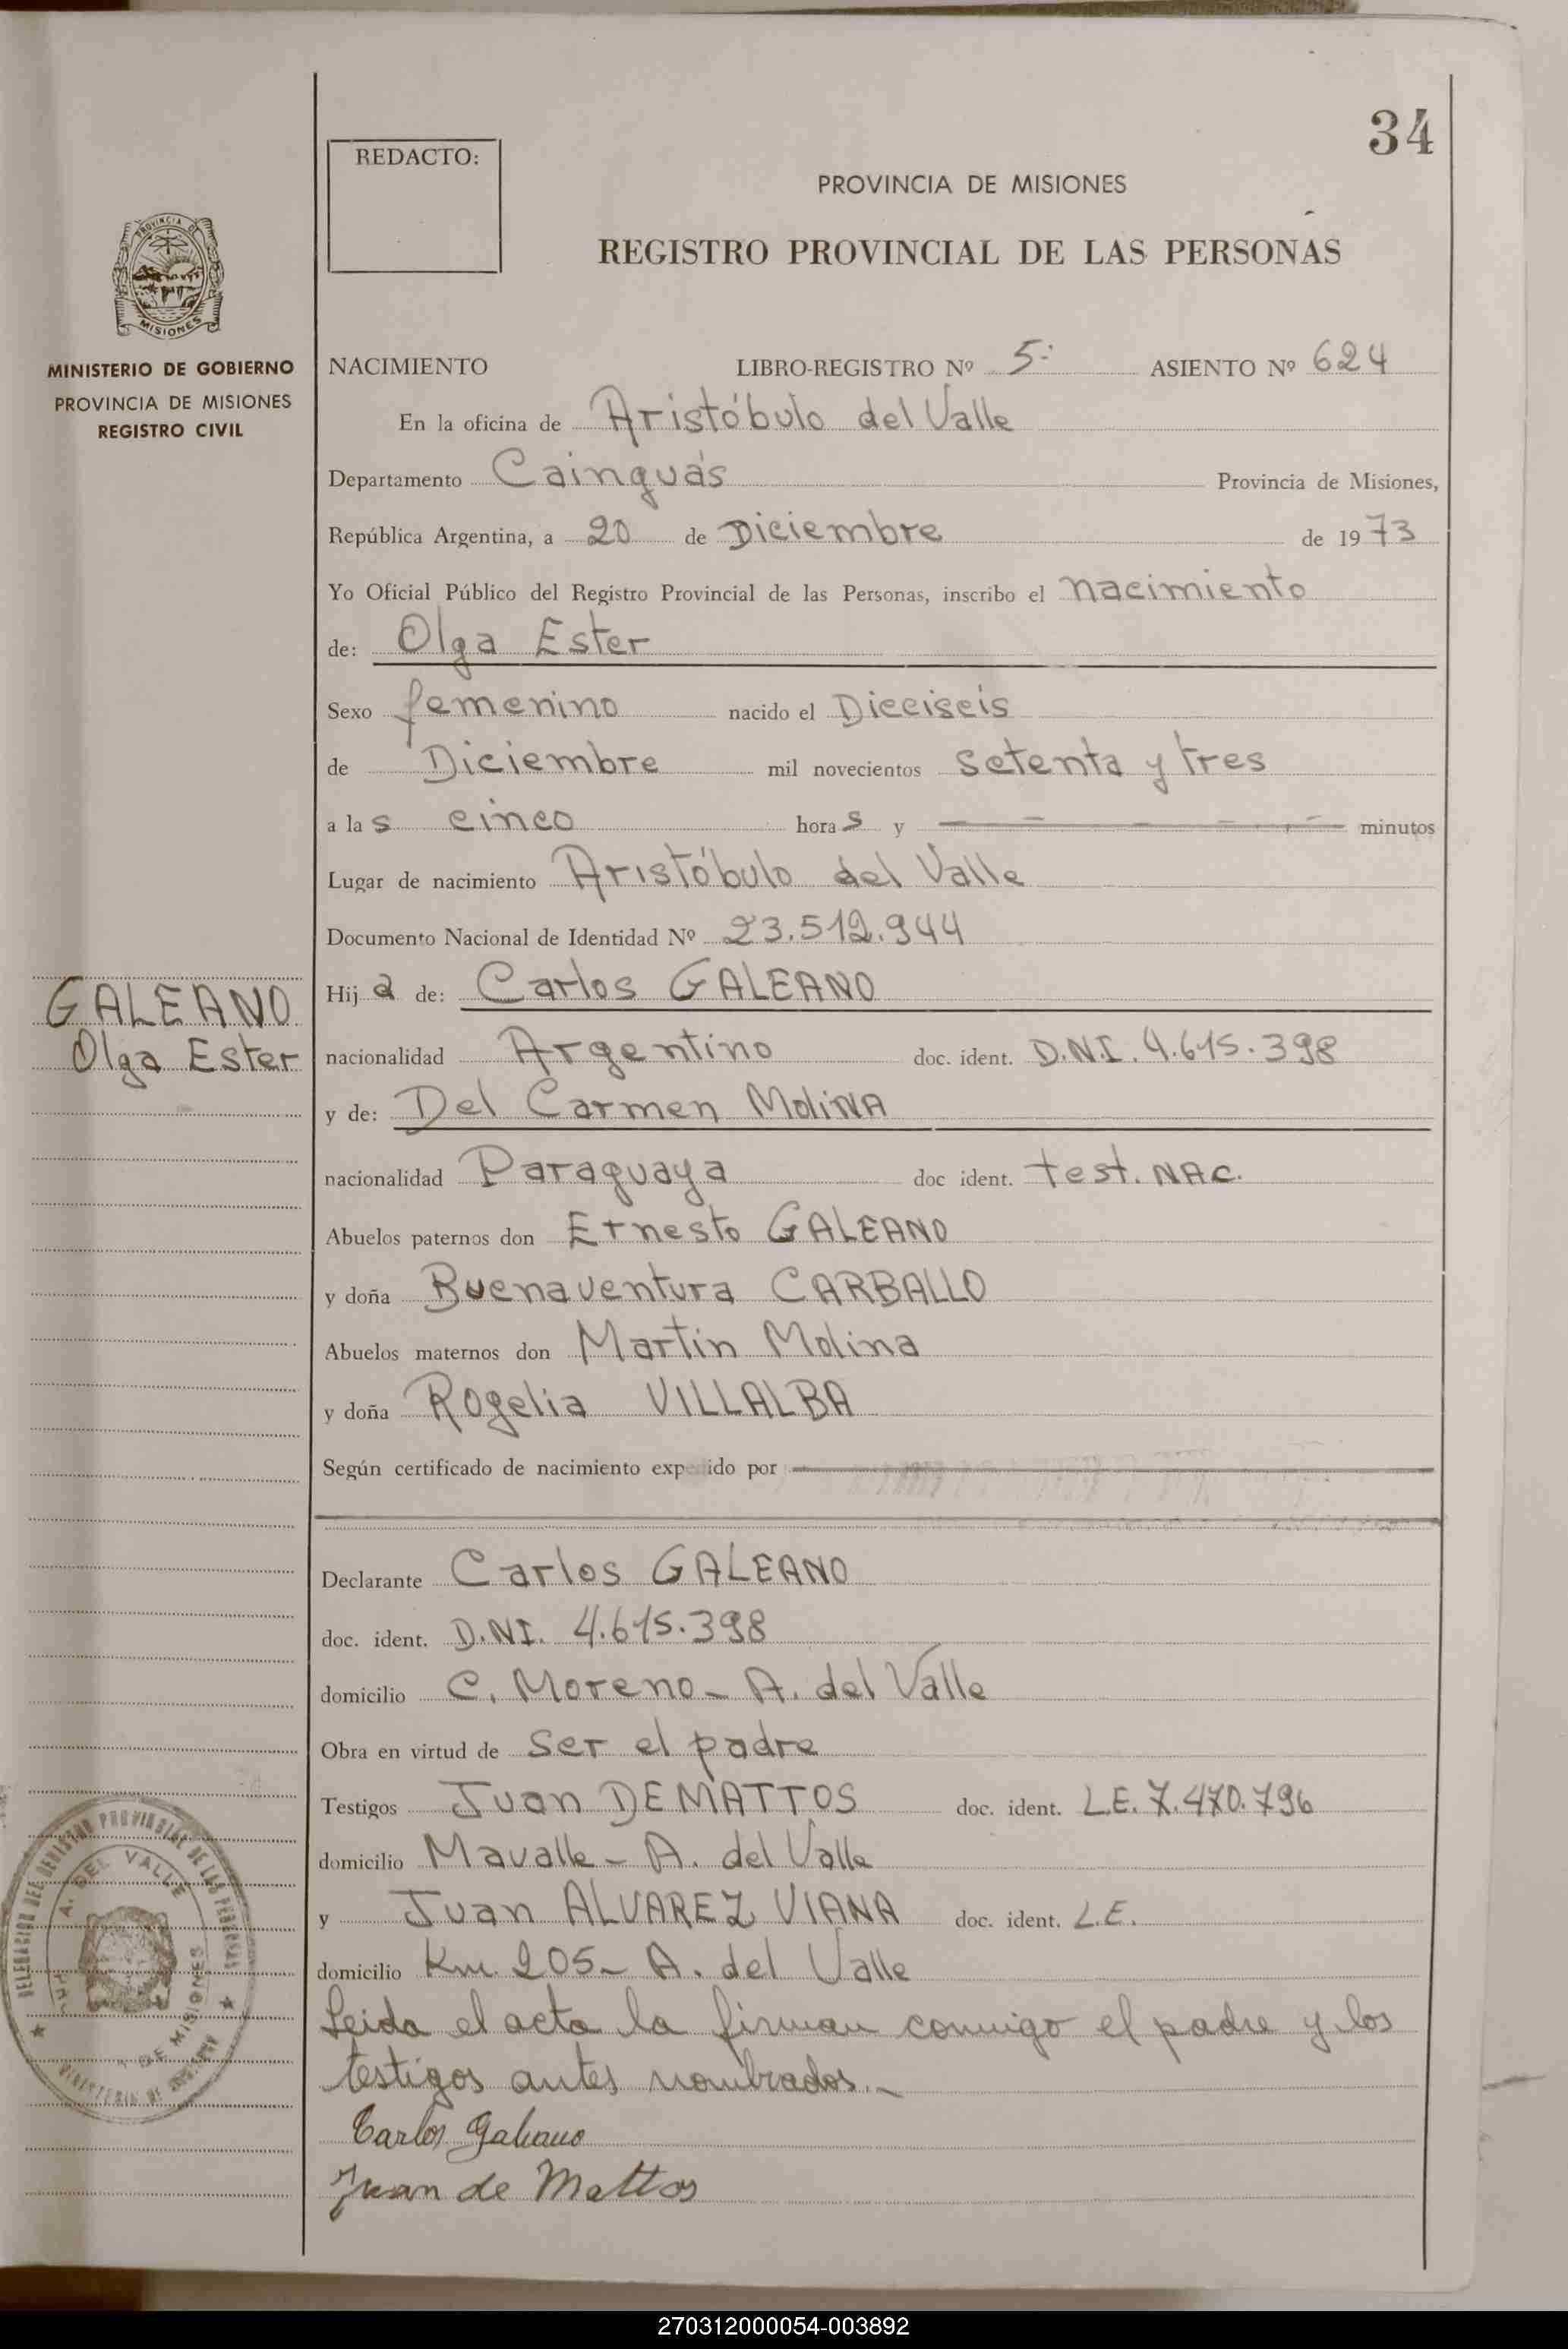 34
REDACTO:
PROVINCIA DE MISIONES
REGISTRO PROVINCIAL DE LAS PERSONAS
PROVINCIA DE
MISIONES
MINISTERIO DE GOBIERNO
PROVINCIA DE MISIONES
REGISTRO CIVIL
NACIMIENTO LIBRO-REGISTRO Nº 5: ASIENTO Nº 624
En la oficina de Aristóbulo del Valle
Departamento Cainguás Provincia de Misiones,
República Argentina, a 20 de Diciembre de 1973
Yo Oficial Público del Registro Provincial de las Personas, inscribo el nacimiento
de: Olga Ester
Sexo femenino nacido el Dieciseis
de Diciembre mil novecientos setenta y tres
a las cinco horas y minutos
Lugar de nacimiento Aristóbulo del Valle
Documento Nacional de Identidad Nº 23.512.944
GALEANO
Olga Ester
Hija de: Carlos GALEANO
nacionalidad Argentino doc. ident. D.N.I. 4.615.398
y de: Del Carmen MoliNA
nacionalidad Paraguaya doc ident. test. NAC.
Abuelos paternos don Ernesto GALEANO
y doña Buenaventura CARBALLO
Abuelos maternos don Martín Molina
y doña Rogelia VILLALBA
Según certificado de nacimiento expedido por
Declarante Carlos GALEANO
doc. ident. D.NI. 4.615.398
domicilio C. Moreno - A. del Valle
Obra en virtud de ser el padre
Testigos Juan DEMATTOS doc. ident. L.E. 7.470.796
domicilio Mavalle - A. del Valle
y Juan ALVAREZ VIANA doc. ident. L.E.
domicilio Km 205 - A. del Valle
Leida el acta la firman conmigo el padre y los
testigos antes nombrados.-
Carlos Galeano
Juan de Mattos
DELEGACION DEL REGISTRO PROVINCIAL DE LAS PERSONAS
A. DEL VALLE
DE MISIONES
270312000054-003892